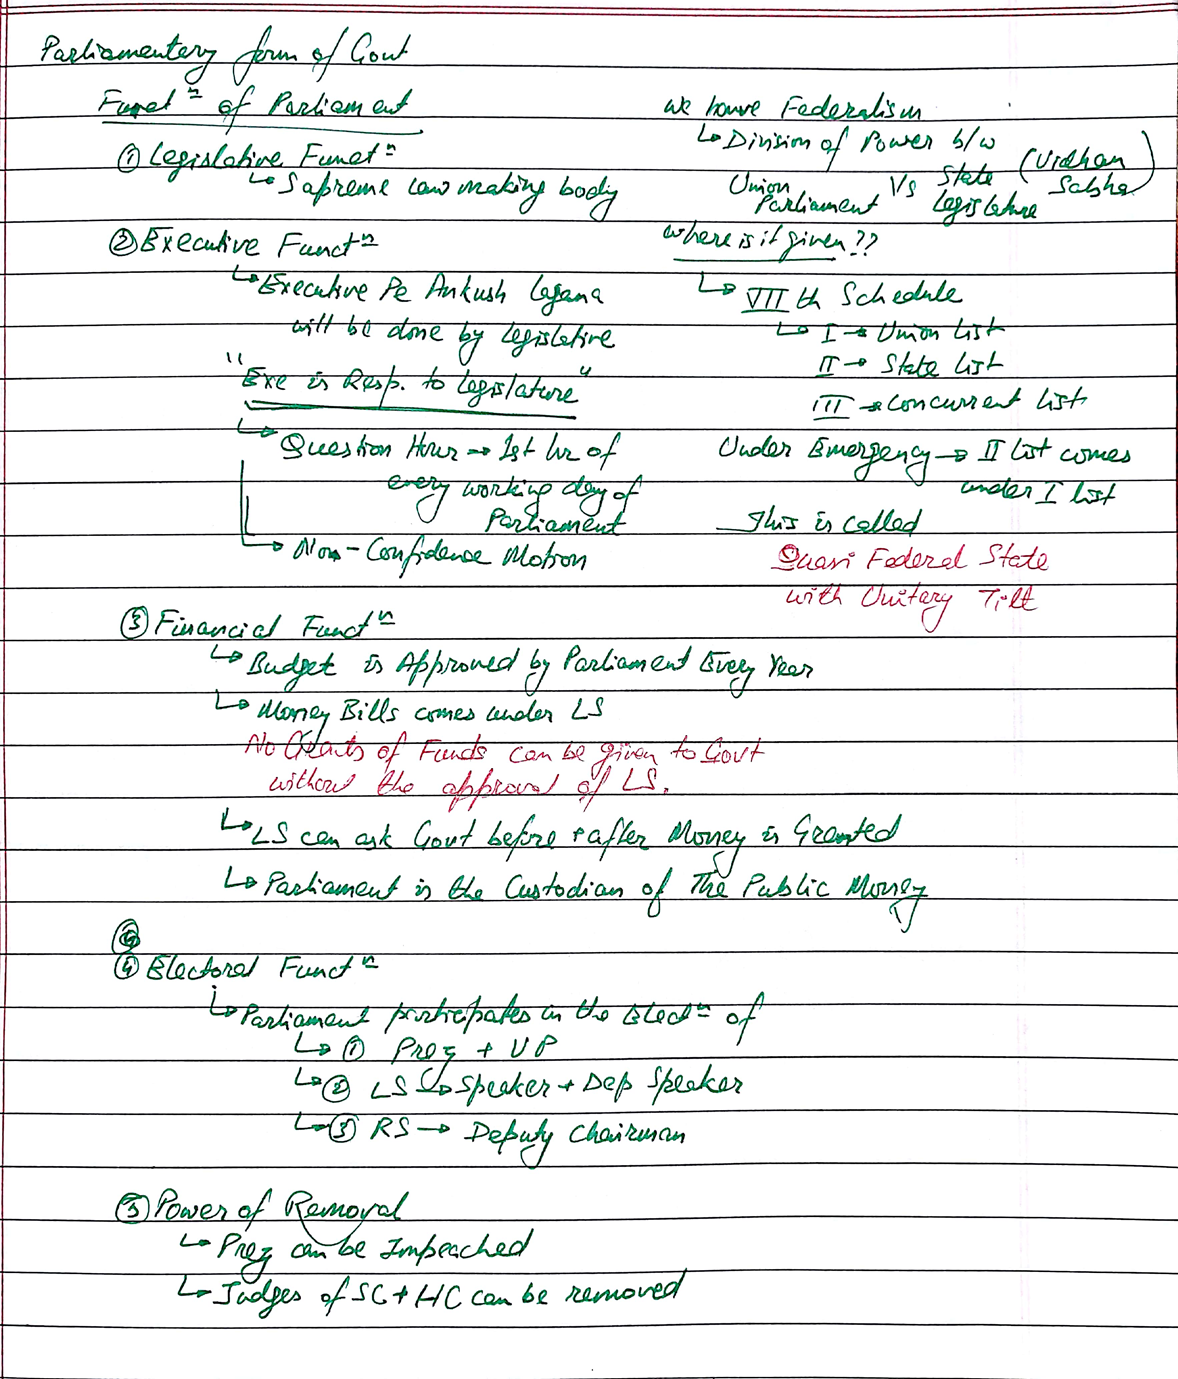 Parliamentary form of Govt
Functⁿ of Parliament
① Legislative Functⁿ
↳ Supreme law making body
② Executive Functⁿ
↳ Executive Pe Ankush lagana
will be done by legislative
"Exe is Resp. to legislature"
↳ Question Hour → 1st hr of
every working day of
Parliament
↳ Non-Confidence Motion
we have Federalism
↳ Division of Power b/w
Union Parliament Vs State Legislature (Vidhan Sabha)
where is it given??
↳ VII th Schedule
↳ I → Union list
II → State list
III → Concurrent list
Under Emergency → II list comes
under I list
This is called
Quasi Federal State
with Unitary Tilt
③ Financial Functⁿ
↳ Budget is Approved by Parliament Every Year
↳ Money Bills comes under LS
No Grants of Funds can be given to Govt
without the approval of LS.
↳ LS can ask Govt before + after Money is Granted
↳ Parliament is the Custodian of The Public Money
④ Electoral Functⁿ
↳ Parliament participates in the Electⁿ of
↳ ① Prez + VP
↳ ② LS ↳ Speaker + Dep Speaker
↳ ③ RS → Deputy Chairman
⑤ Power of Removal
↳ Prez can be Impeached
↳ Judges of SC + HC can be removed